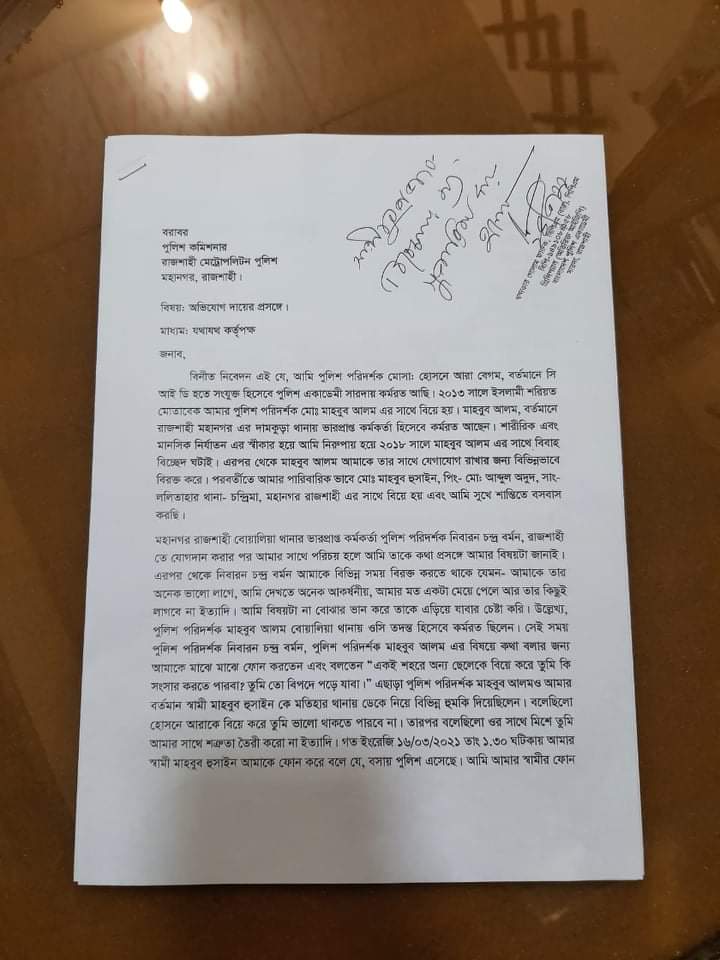 বরাবর
পুলিশ কমিশনার
রাজশাহী মেট্রোপলিটন পুলিশ
মহানগর, রাজশাহী।
বিষয়: অভিযোগ দায়ের প্রসঙ্গে।
মাধ্যম: যথাযথ কর্তৃপক্ষ
জনাব,
বিনীত নিবেদন এই যে, আমি পুলিশ পরিদর্শক মোসা: হোসনে আরা বেগম, বর্তমানে সি
আই ডি হতে সংযুক্ত হিসেবে পুলিশ একাডেমী সারদায় কর্মরত আছি। ২০১৩ সালে ইসলামী শরিয়ত
মোতাবেক আমার পুলিশ পরিদর্শক মোঃ মাহবুব আলম এর সাথে বিয়ে হয়। মাহবুব আলম, বর্তমানে
রাজশাহী মহানগর এর দামকুড়া থানায় ভারপ্রাপ্ত কর্মকর্তা হিসেবে কর্মরত আছেন। শারীরিক এবং
মানসিক নির্যাতন এর স্বীকার হয়ে আমি নিরুপায় হয়ে ২০১৮ সালে মাহবুব আলম এর সাথে বিবাহ
বিচ্ছেদ ঘটাই। এরপর থেকে মাহবুব আলম আমাকে তার সাথে যেগাযোগ রাখার জন্য বিভিন্নভাবে
বিরক্ত করে। পরবর্তীতে আমার পারিবারিক ভাবে মোঃ মাহবুব হুসাইন, পিং- মোঃ আব্দুল অদুদ, সাং-
ললিতাহার থানা- চন্দ্রিমা, মহানগর রাজশাহী এর সাথে বিয়ে হয় এবং আমি সুখে শান্তিতে বসবাস
করছি।
মহানগর রাজশাহী বোয়ালিয়া থানার ভারপ্রাপ্ত কর্মকর্তা পুলিশ পরিদর্শক নিবারন চন্দ্র বর্মন, রাজশাহী
তে যোগদান করার পর আমার সাথে পরিচয় হলে আমি তাকে কথা প্রসঙ্গে আমার বিষয়টা জানাই।
এরপর থেকে নিবারন চন্দ্র বর্মন আমাকে বিভিন্ন সময় বিরক্ত করতে থাকে যেমন- আমাকে তার
অনেক ভালো লাগে, আমি দেখতে অনেক আকর্ষনীয়, আমার মত একটা মেয়ে পেলে আর তার কিছুই
লাগবে না ইত্যাদি। আমি বিষয়টা না বোঝার ভান করে তাকে এড়িয়ে যাবার চেষ্টা করি। উল্লেখ্য,
পুলিশ পরিদর্শক মাহবুব আলম বোয়ালিয়া থানায় ওসি তদন্ত হিসেবে কর্মরত ছিলেন। সেই সময়
পুলিশ পরিদর্শক নিবারন চন্দ্র বর্মন, পুলিশ পরিদর্শক মাহবুব আলম এর বিষয়ে কথা বলার জন্য
আমাকে মাঝে মাঝে ফোন করতেন এবং বলতেন “একই শহরে অন্য ছেলেকে বিয়ে করে তুমি কি
সংসার করতে পারবা? তুমি তো বিপদে পড়ে যাবা।” এছাড়া পুলিশ পরিদর্শক মাহবুব আলমও আমার
বর্তমান স্বামী মাহবুব হুসাইন কে মতিহার থানায় ডেকে নিয়ে বিভিন্ন হুমকি দিয়েছিলেন। বলেছিলো
হোসনে আরাকে বিয়ে করে তুমি ভালো থাকতে পারবে না। তারপর বলেছিলো ওর সাথে মিশে তুমি
আমার সাথে শত্রুতা তৈরী করো না ইত্যাদি। গত ইংরেজি ১৬/০৩/২০২১ তাং ১.৩০ ঘটিকায় আমার
স্বামী মাহবুব হুসাইন আমাকে ফোন করে বলে যে, বসায় পুলিশ এসেছে। আমি আমার স্বামীর ফোন